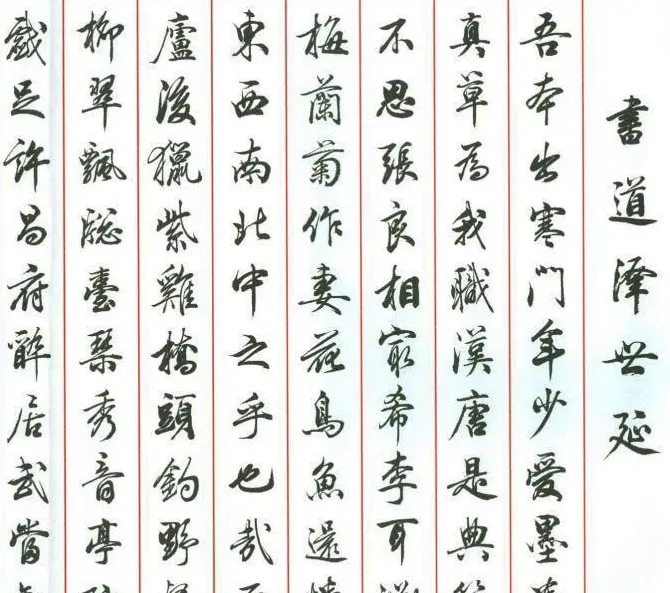 書道澤世延
吾本出寒門年少愛墨
真草為我職漢唐是典
不思張良相寂希李耳
梅蘭菊作妻花鳥魚還
東西南北中之乎也哉
廬後獵紫雞橋頭釣野
柳翠飄臺琴秀音亭
戲足許昌府醉居武當